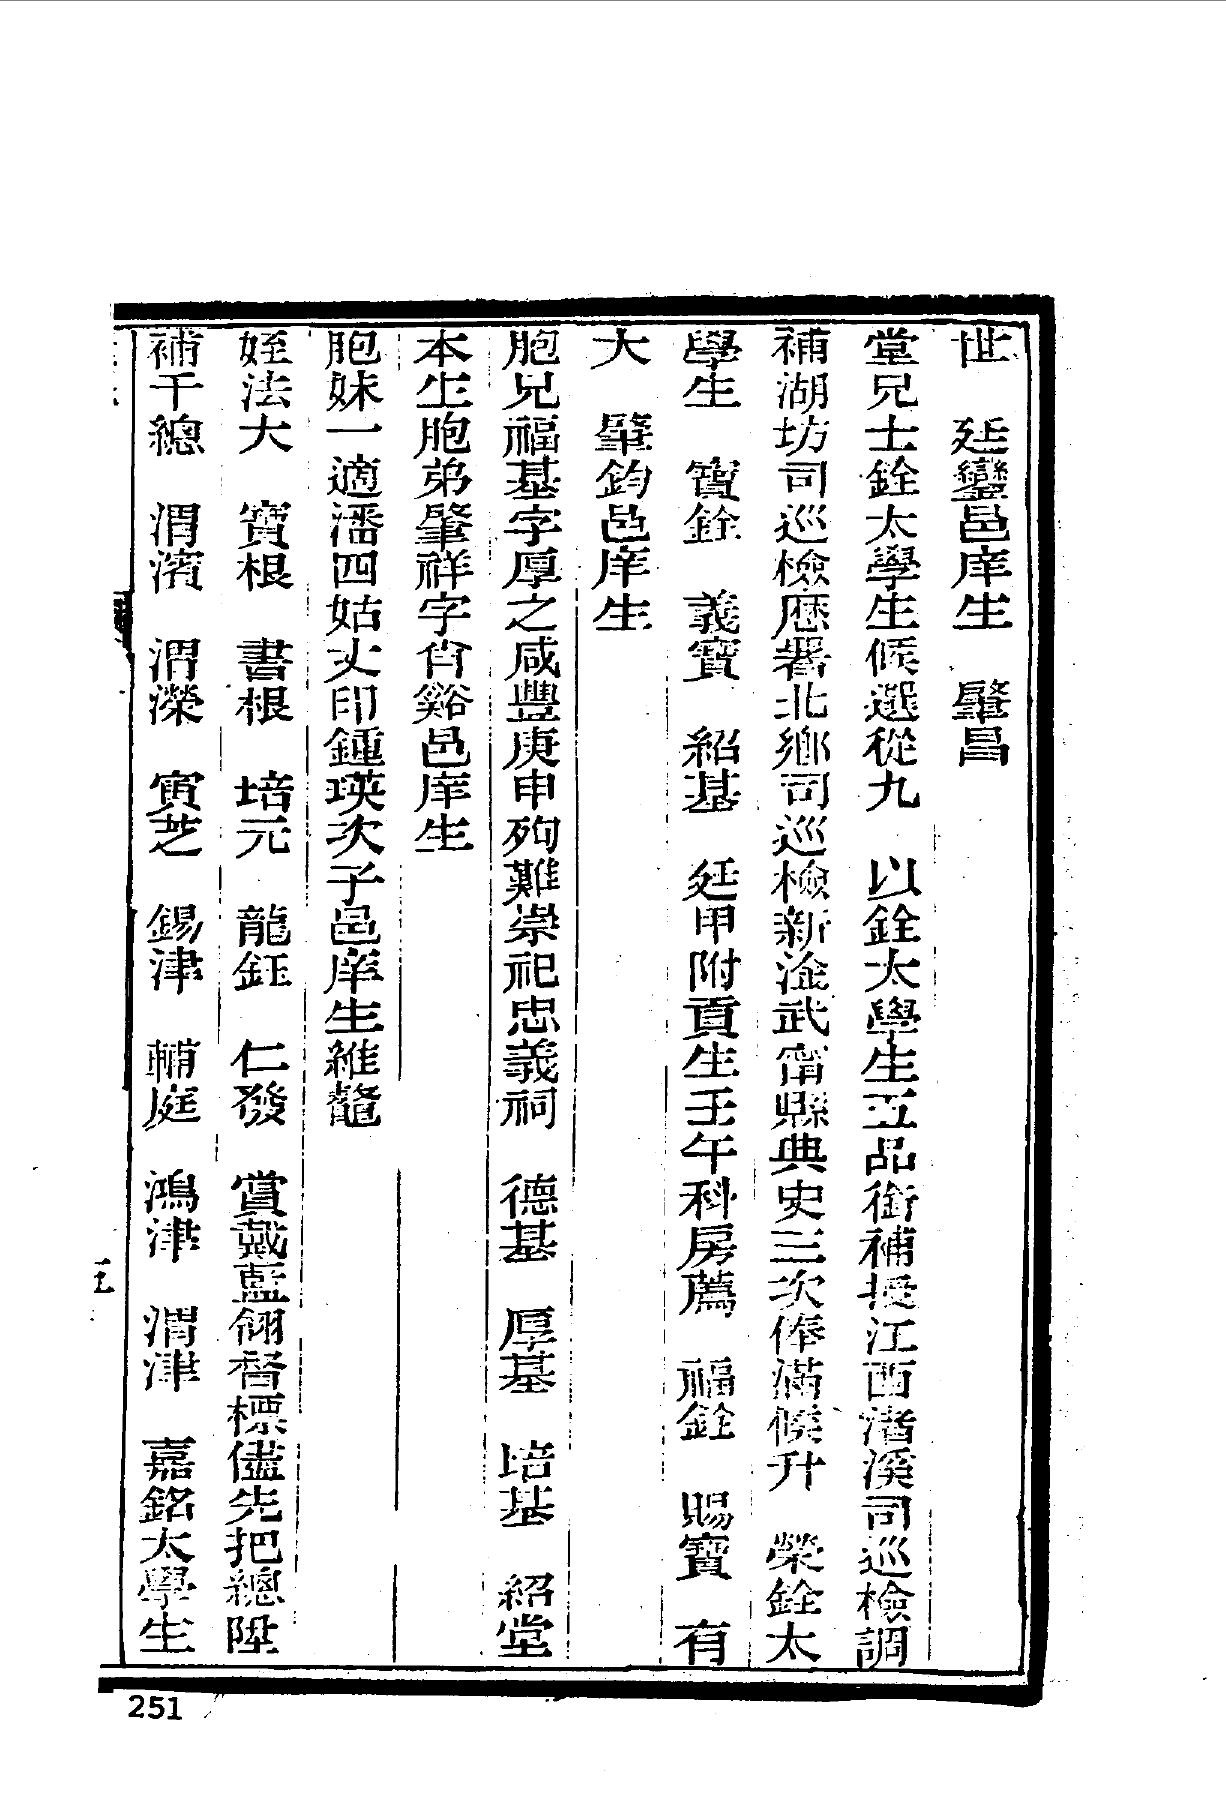 世　廷鑾邑庠生　肇昌
堂兄士銓太學生候選從九　以銓太學生五品銜補授江西渚溪司巡檢調
補湖坊司巡檢歷署北鄉司巡檢新淦武甯縣典史三次俸滿候升　榮銓太
學生　寶銓　義寶　紹基　廷甲附貢生壬午科房薦　福銓　賜寶　有
大　肇鈞邑庠生
胞兄福基字厚之咸豐庚申殉難崇祀忠義祠　德基　厚基　培基　紹堂
本生胞弟肇祥字肖谿邑庠生
胞妹一適潘四姑丈印鍾瑛次子邑庠生維鼇
姪法大　寶根　書根　培元　龍鈺　仁發　賞戴藍翎督標儘先把總陞
補千總　渭濱　渭濚　寅芝　錫津　輔庭　鴻津　渭津　嘉銘太學生
251